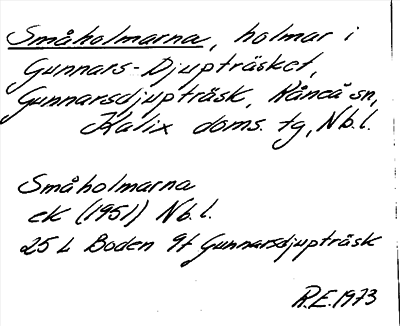 Småholmarna, holmar i
Gunnars-Djupträsket,
Gunnarsdjupträsk, Råneå sn,
Kalix doms. tg, Nb.l.
Småholmarna
ek (1951) Nb.l.
25 L Boden 9f Gunnarsdjupträsk
R.E. 1973